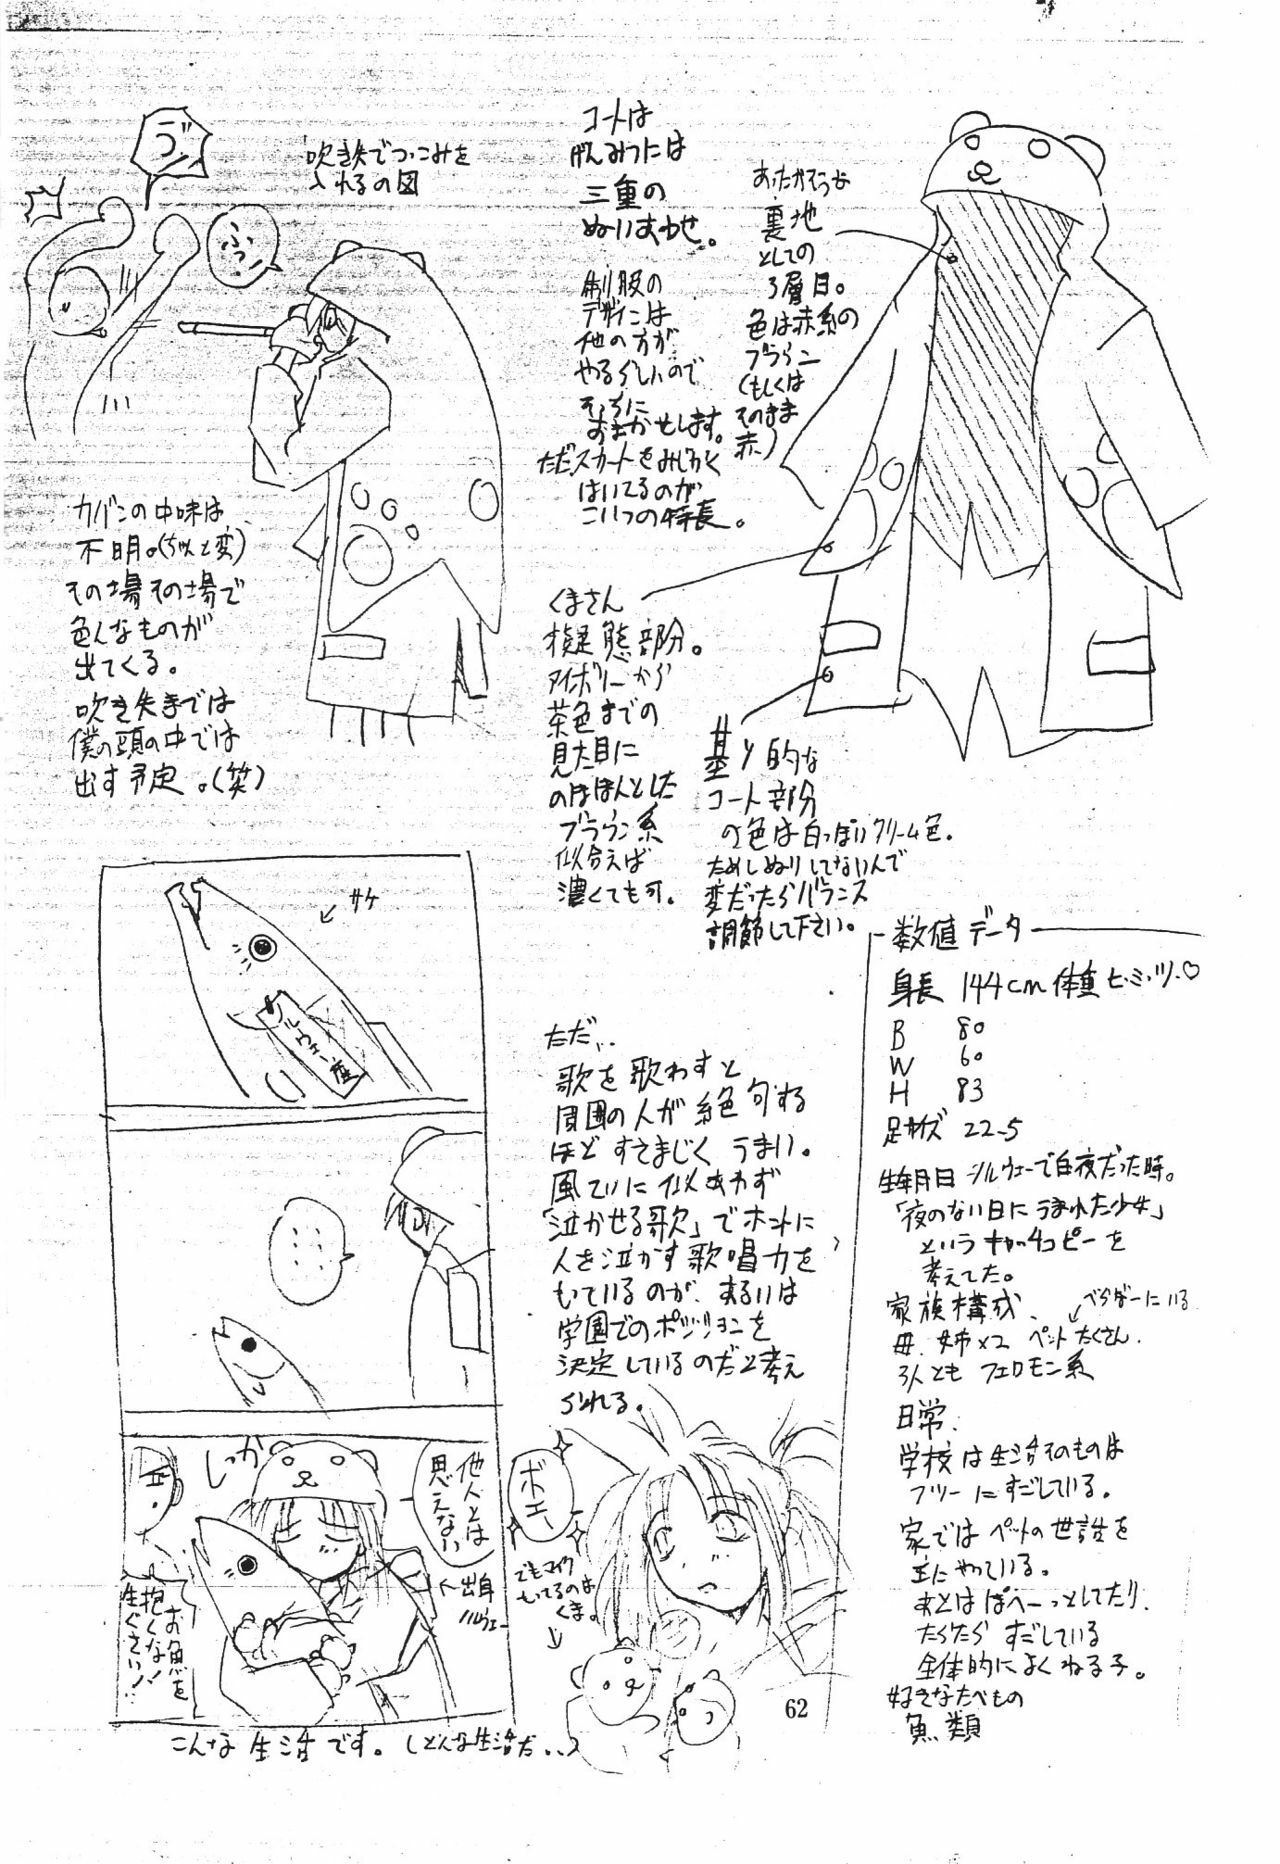 ゴン
ふっ
吹き矢でつっこみを
入れるの図
コートは
げんみつには
三重の
ぬいあわせ。
制服の
デザインは
他の方が
やるらしいので
そっちに
おまかせします。
ただスカートをみじかく
はいてるのが
こいつの特長。
あったかそうな
裏地
としての
3層目。
色は赤系の
ブラウン
(もしくは
そのまま
赤)
カバンの中味は
不明。(ちょっと変)
その場その場で
色んなものが
出てくる。
吹き矢までは
僕の頭の中では
出す予定。(笑)
くまさん
擬態部分。
アイボリーから
茶色までの
見た目に
のほほんとした
ブラウン系
似合えば
濃くても可。
基ソ的な
コート部分
の色は白っぽいクリーム色。
ためしぬりしてないんで
変だったらバランス
調節して下さい。
サケ
ノルウェー産
しっか
他人とは
思えない
出身
ノルウェー
お魚を
抱くな!
生ぐさい!
こんな生活です。(どんな生活だ…)
ただ…
歌を歌わすと
周囲の人が絶句する
ほどすさまじくうまい。
風ていに似あわず
「泣かせる歌」でホントに
人を泣かす歌唱力を
もっているのが、あるいは
学園でのポジションを
決定しているのだと考え
られる。
ボエー
でもマイク
もってるのは
くま。
数値データ
身長 144cm 体重 ヒ・ミ・ツ♡
B 80
W 60
H 83
足サイズ 22.5
生年月日 ノルウェーで白夜だった時。
「夜のない日にうまれた少女」
というキャッチコピーを
考えてた。
家族構成
母、姉×2 ペットたくさん。
べらぼーにいる
3人ともフェロモン系
日常
学校は生活そのものは
フツーにすごしている。
家ではペットの世話を
主にやっている。
あとはぽへーっとしてたり、
だらだらすごしている
全体的によくねる子。
好きなたべもの
魚類
62